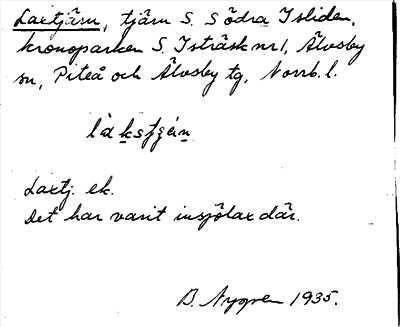 Laxtjärn, tjärn S. Södra Isliden,
kronoparken S. Isträsk nr 1, Älvsby
sn, Piteå och Älvsby tg, Norrb. l.
Laxtj. ek.
Det har varit insjölax där.
B. Nygren 1935.